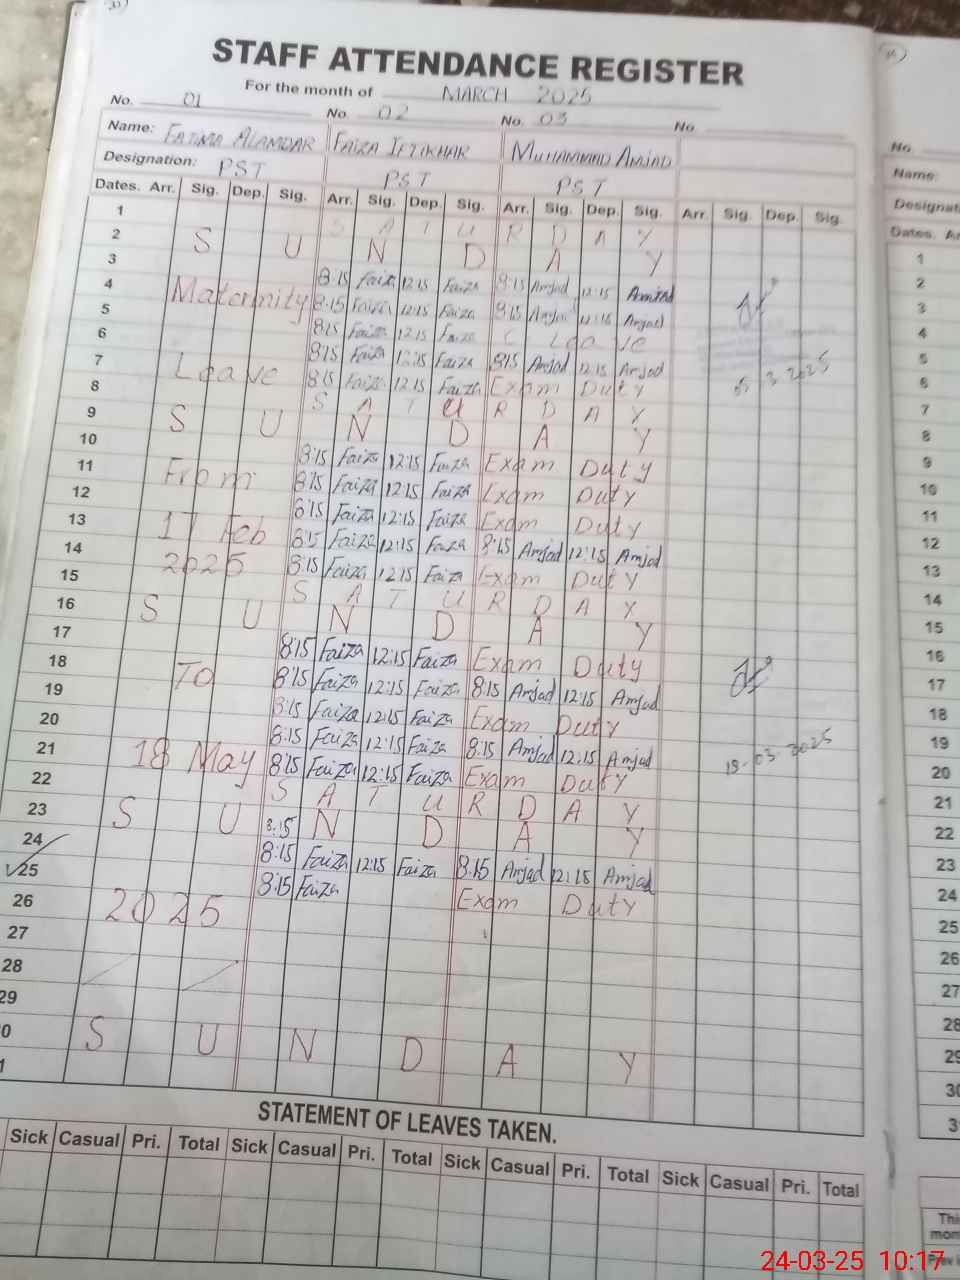 STAFF ATTENDANCE REGISTER
For the month of MARCH 2025
No. 01 No. 02 No. 03 No.
Name: FATIMA ALAMDAR FAIZA IFTIKHAR MUHAMMAD AMJAD
Designation: PST PST PST
Dates. Arr. Sig. Dep. Sig. Arr. Sig. Dep. Sig. Arr. Sig. Dep. Sig. Arr. Sig. Dep. Sig.
1 S A T U R D A Y
2 S U N D A Y
3 8:15 Faiza 12:15 Faiza 8:15 Amjad 12:15 Amjad
4 Maternity 8:15 Faiza 12:15 Faiza 8:15 Amjad 12:15 Amjad
5 8:15 Faiza 12:15 Faiza C Leave
6 8:15 Faiza 12:15 Faiza 8:15 Amjad 12:15 Amjad
7 Leave 8:15 Faiza 12:15 Faiza Exam Duty 5 3 2025
8 S A T U R D A Y
9 S U N D A Y
10 8:15 Faiza 12:15 Faiza Exam Duty
11 From 8:15 Faiza 12:15 Faiza Exam Duty
12 8:15 Faiza 12:15 Faiza Exam Duty
13 17 Feb 8:15 Faiza 12:15 Faiza 8:15 Amjad 12:15 Amjad
14 2025 8:15 Faiza 12:15 Faiza Exam Duty
15 S A T U R D A Y
16 S U N D A Y
17 8:15 Faiza 12:15 Faiza Exam Duty
18 To 8:15 Faiza 12:15 Faiza 8:15 Amjad 12:15 Amjad
19 8:15 Faiza 12:15 Faiza Exam Duty
20 8:15 Faiza 12:15 Faiza 8:15 Amjad 12:15 Amjad
21 18 May 8:15 Faiza 12:15 Faiza Exam Duty 19-03-2025
22 S A T U R D A Y
23 S U 8:15 N D A Y
24 8:15 Faiza 12:15 Faiza 8:15 Amjad 12:15 Amjad
25 8:15 Faiza Exam Duty
26 2025
27
28
29
0 S U N D A Y
1
STATEMENT OF LEAVES TAKEN.
Sick Casual Pri. Total Sick Casual Pri. Total Sick Casual Pri. Total Sick Casual Pri. Total
No.
Name:
Designat
Dates. Ar
1
2
3
4
5
6
7
8
9
10
11
12
13
14
15
16
17
18
19
20
21
22
23
24
25
26
27
28
29
30
3
Thi
mon
24-03-25 10:17